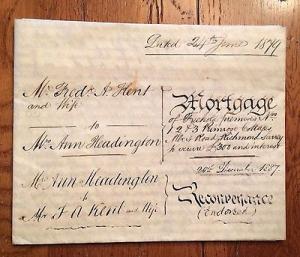 Dated 24th June 1879
Mr Fredk A Kent
and Wife
to
Mrs Ann Headington
Mortgage
of Freehold premises Nos
1 2 & 3 Primrose Cottages
Road Richmond Surrey
to secure £300 and interest
20th December 1887
Mrs Ann Headington
to
Mr F A Kent and Wife
Reconveyance
(endorsed)